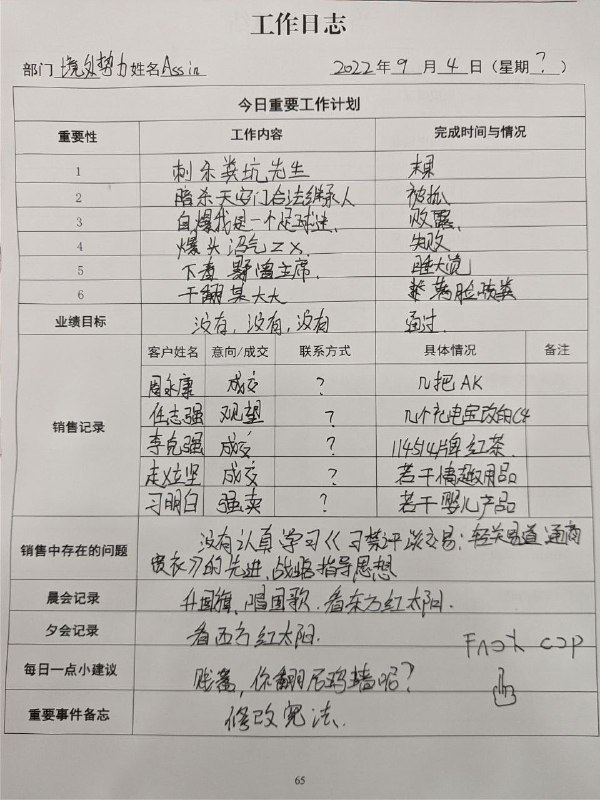 工作日志
部门 境外势力 姓名 Assin 2022 年 9 月 4 日（星期 ? ）
今日重要工作计划
重要性 工作内容 完成时间与情况
1 刺杀粪坑先生 未果
2 暗杀天安门合法继承人 被抓
3 自爆我是一个足球迷. 败露.
4 爆头沼气ZX. 失败
5 下毒 主席. 睡大觉
6 干翻某大大
业绩目标 没有, 没有, 没有 通过.
客户姓名 意向/成交 联系方式 具体情况 备注
周永康 成交 ? 几把 AK
任志强 观望 ? 几个充电宝改的C4
销售记录 李克强 成交 ? 114514牌红茶.
赵立坚 成交 ? 若干情趣用品
习明白 强卖 ? 若干婴儿产品
销售中存在的问题 没有认真学习《习禁评谈交易: 轻关易道 通商
宽衣》的先进, 战略指导思想
晨会记录 升国旗, 唱国歌. 看东方红太阳.
夕会记录 看西方红太阳.
每日一点小建议 贱畜, 你翻尼玛墙呢?
重要事件备忘 修改宪法.
65